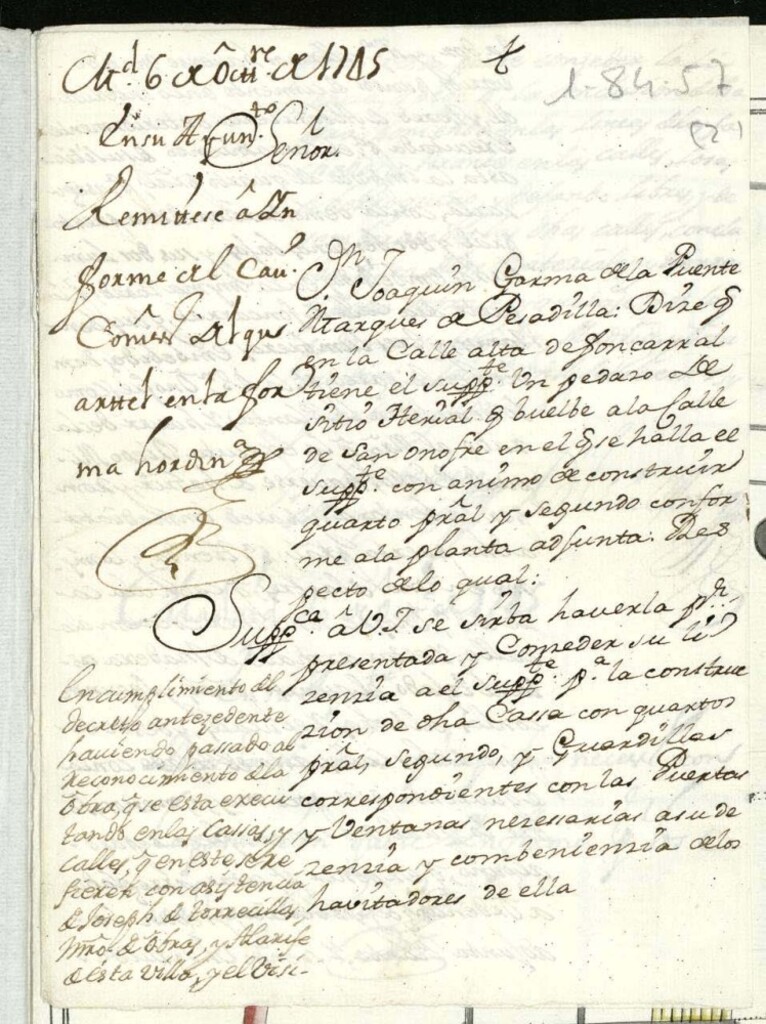 Md. 6 de Octre. de 1745
1-84-57
(21)
En su Ayuntto.
Señor.
Remitese a In
forme del Cavo.
Comiss. del qu
arttel en la for
ma hordina
Dn. Joaquin Garma de la Puente
Marques de Pesadilla: Dize q
en la Calle alta de foncarral
tiene el suppte. Un pedazo de
sitio Herial q buelbe a la Calle
de San Onofre en el q se halla el
suppte. con animo de construir
quarto pral y segundo confor
me a la planta adjunta. Res
pecto de lo qual:
Suppca. a V.I. se sirba haverla pr.
presentada y Conzeder su li
zenzia a el suppte. pa. la construc
zion de dha Cassa con quartos
pral, segundo, y Guardillas
correspondientes con las Puertas
y Ventanas nezesarias a su de
zenzia y combenienzia de los
havitadores de ella
En cumplimiento del
decreto antezedente
haviendo passado al
Reconocimiento de la
obra, q se esta execu
tando en las Cassas, y
calles, q en este se re
fieren con asistencia
de Joseph de torrecilla
Mro. de Obras, y Alarife
de esta villa, y el Visi-